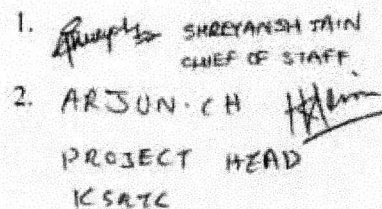 1. SHREYANSH JAIN
CHIEF OF STAFF
2. ARJUN. CH
PROJECT HEAD
KSRTC